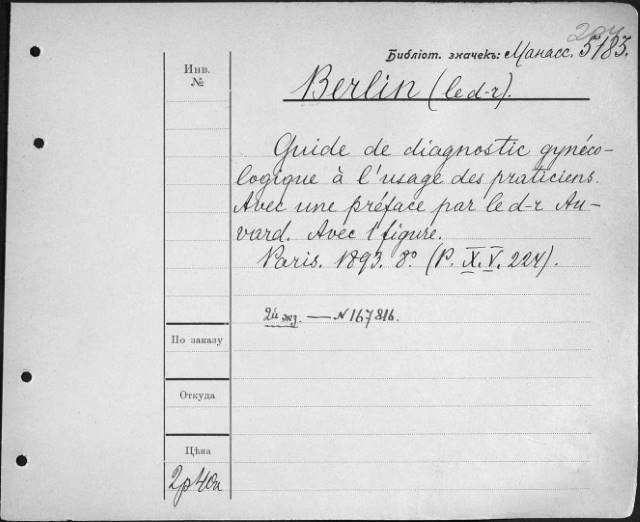 Библіот. значекъ: Манасс. 5183.
Инв.
№
Berlin (le d-r).
Guide de diagnostic gynéco-
logique à l'usage des praticiens.
Avec une préface par le d-r Au-
vard. Avec 1 figure.
Paris. 1893. 8° (P. X. V. 224).
2й экз. — N 167816.
По заказу
Откуда
Цѣна
2р 40к